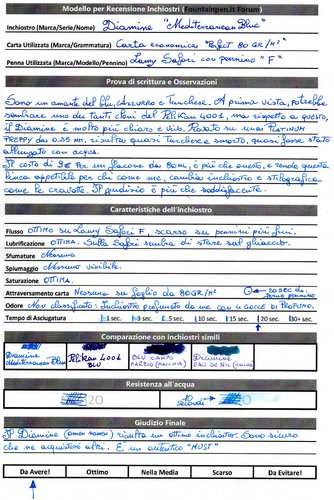 Modello per Recensione Inchiostri (Fountainpen.it Forum)
Inchiostro (Marca/Serie/Nome) Diamine "Mediterranean Blue"
Carta Utilizzata (Marca/Grammatura) Carta economica "Perfect 80 GR/M²"
Penna Utilizzata (Marca/Modello/Pennino) Lamy Safari con pennino "F"
Prova di scrittura e Osservazioni
Sono un amante del blu, azzurro e Turchese. A prima vista, potrebbe
sembrare uno dei tanti cloni del Pelikan 4001, ma rispetto a questo,
il Diamine è molto più chiaro e vivo. Posato su una Platinum
Preppy da 0.35 mm, risulta quasi Turchese e smorto, quasi fosse stato
allungato con acqua.
Il costo di 3€ per un flacone da 80ml, è più che onesto, e rende questa
linea appetibile per chi come me, cambia inchiostro e stilografica
come le cravatte. Il giudizio è più che soddisfacente.
Caratteristiche dell'inchiostro
Flusso OTTIMO su Lamy Safari F, scarso su pennini più fini.
Lubrificazione OTTIMA. Sulla Safari sembra di stare sul ghiaccio.
Sfumature Nessuna
Spiumaggio Nessuno visibile.
Saturazione OTTIMA.
Attraversamento carta Nessuno su foglio da 80GR/M²
20 sec di
Odore Non classificato: Inchiostro profumato da me con 4 gocce di profumo.
Tempo di Asciugatura 1 sec. 3 sec. 5 sec. 10 sec. 15 sec. 20 sec. 30+ sec.
Comparazione con inchiostri simili
Diamine Mediterranean Blu
Pelikan 4001 BLU
Diamine EAU DE NIL
Resistenza all'acqua
20
10 secondi
20
Giudizio Finale
Il Diamine risulta un ottimo inchiostro. Sono sicuro
che ne acquisterò altri. È un autentico "MUST"
Da Avere! Ottimo Nella Media Scarso Da Evitare!